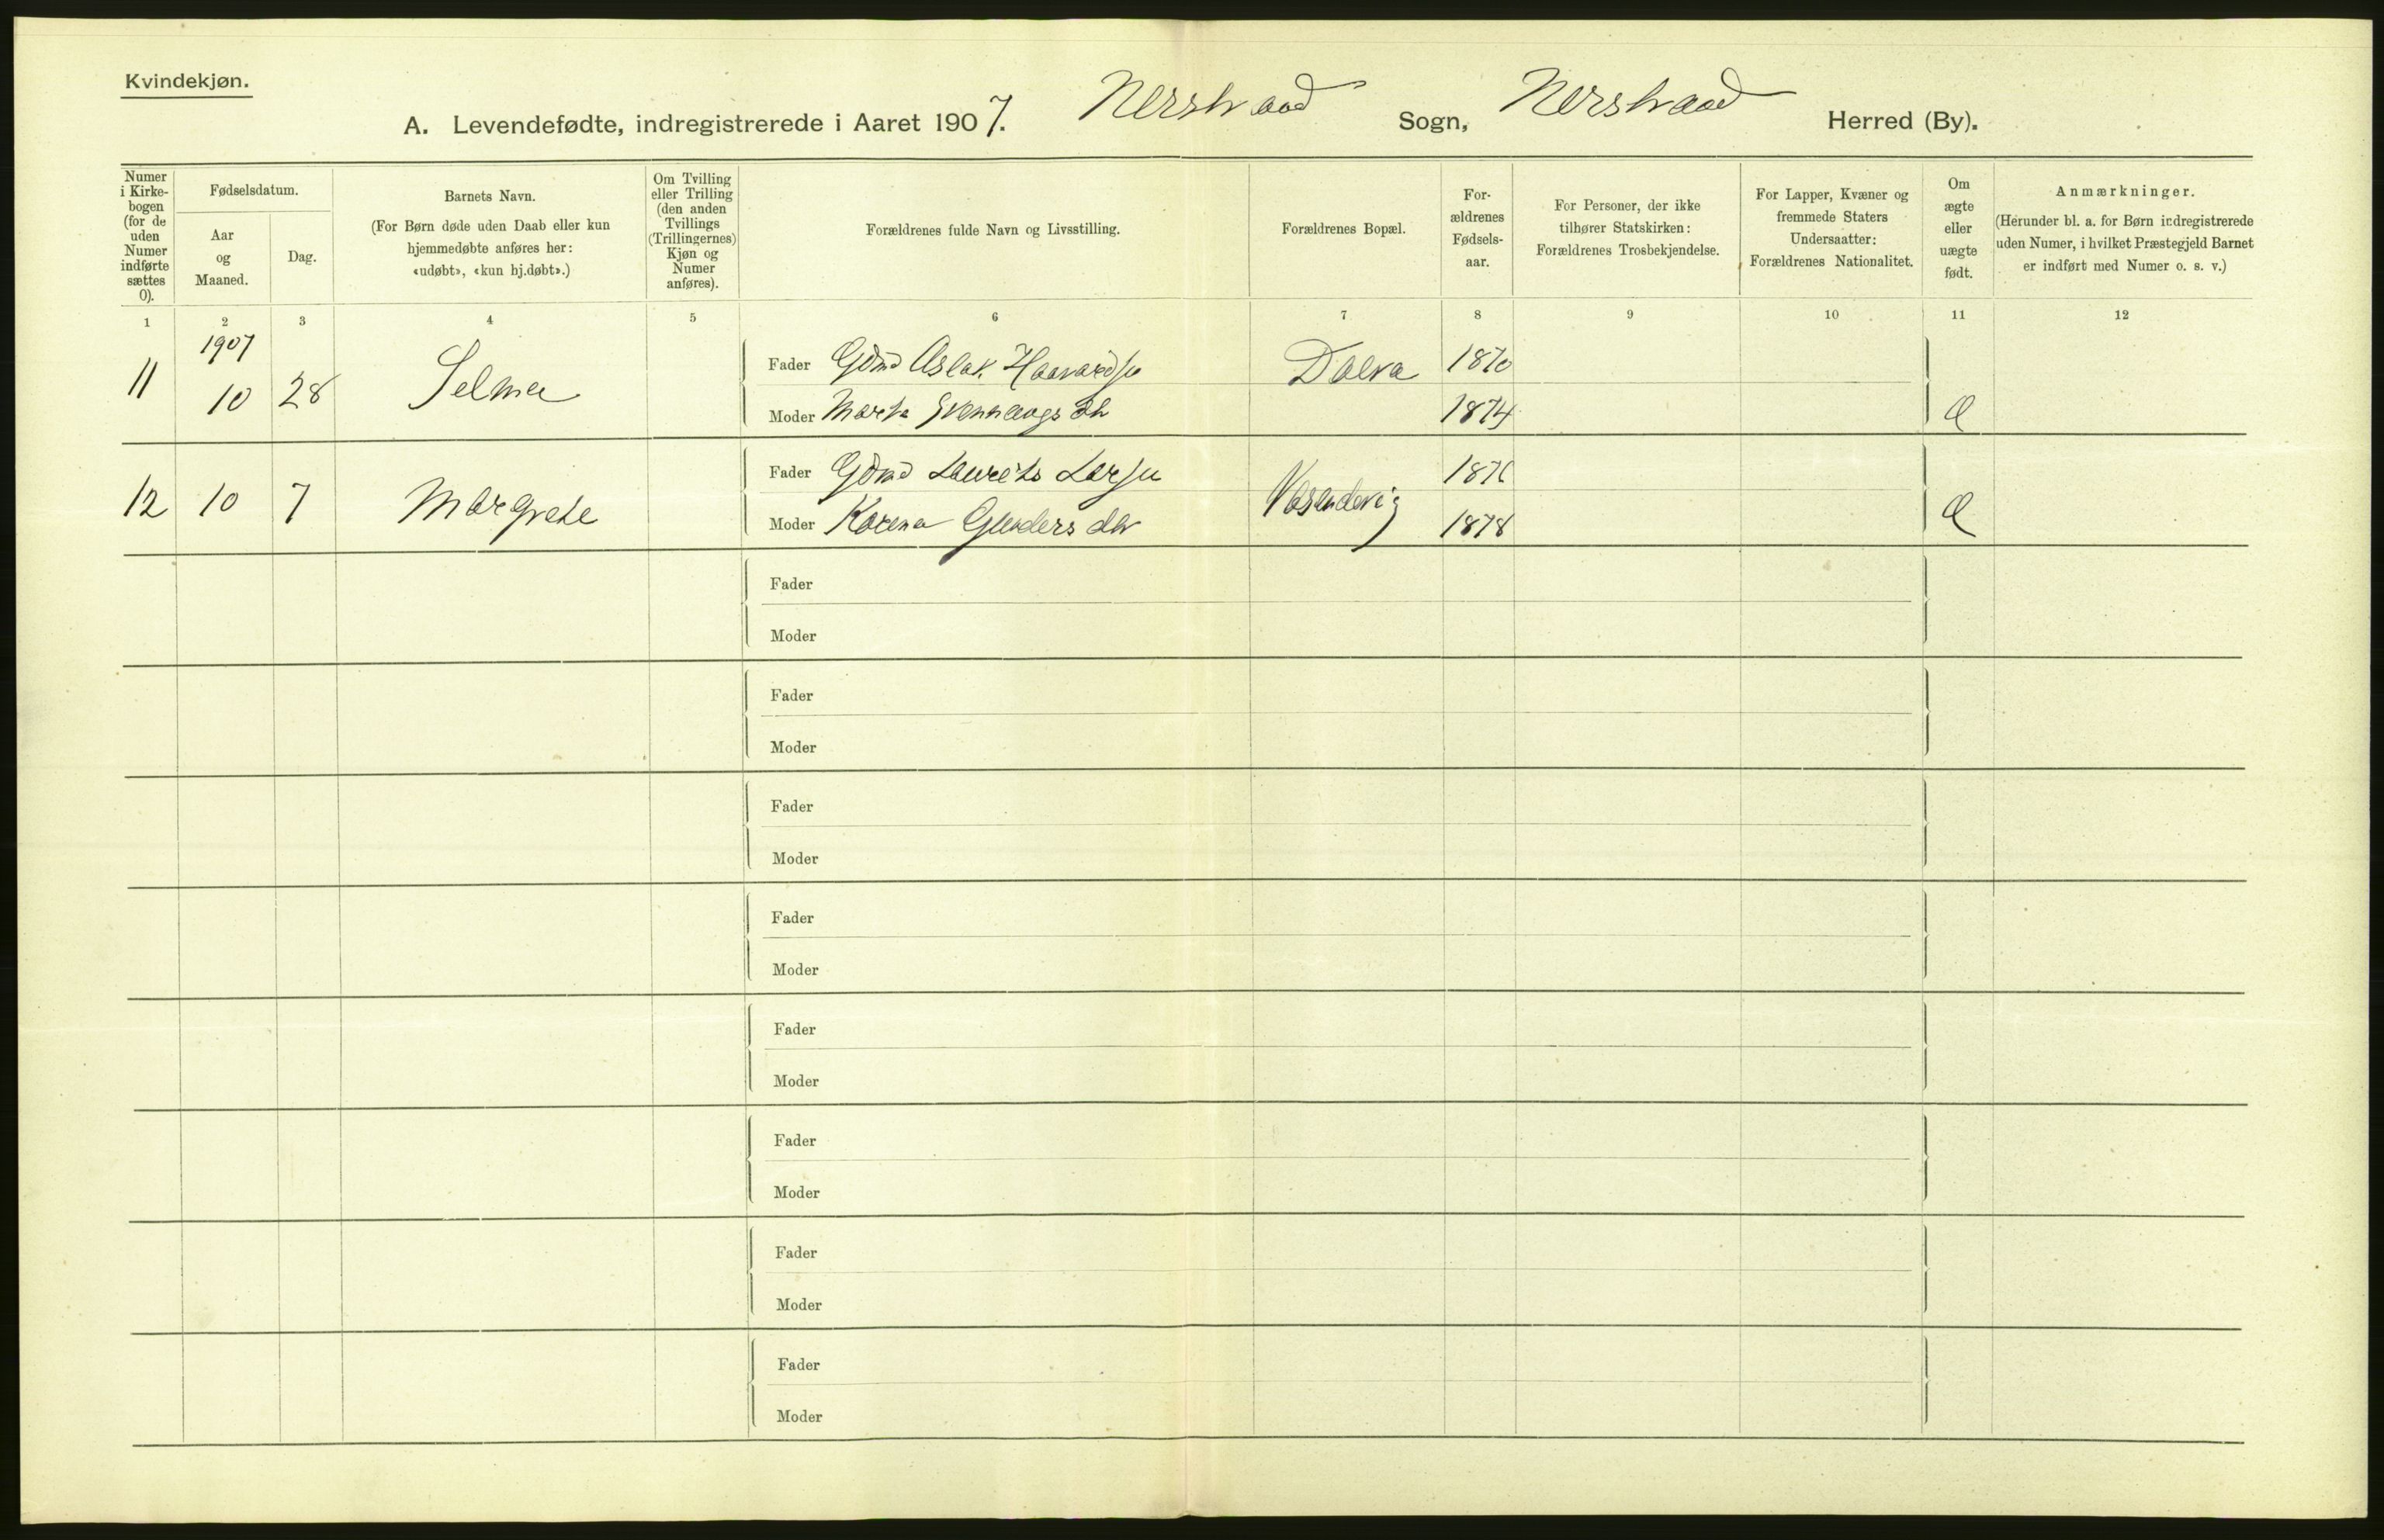 Kvindekjøn.
A. Levendefødte, indregistrerede i Aaret 1907. Nerstrand Sogn, Nerstrand Herred (By).
Numer i Kirke-bogen (for de uden Numer indførte sættes 0).
Fødselsdatum.
Aar og Maaned.
Dag.
Barnets Navn.
(For Børn døde uden Daab eller kun hjemmedøbte anføres her: «udøbt», «kun hj.døbt».)
Om Tvilling eller Trilling (den anden Tvillings (Trillingernes) Kjøn og Numer anføres).
Forældrenes fulde Navn og Livsstilling.
Forældrenes Bopæl.
For-ældrenes Fødsels-aar.
For Personer, der ikke tilhører Statskirken: Forældrenes Trosbekjendelse.
For Lapper, Kvæner og fremmede Staters Undersaatter: Forældrenes Nationalitet.
Om ægte eller uægte født.
Anmærkninger.
(Herunder bl. a. for Børn indregistrerede uden Numer, i hvilket Præstegjeld Barnet er indført med Numer o. s. v.)
1 2 3 4 5 6 7 8 9 10 11 12
1907
11 10 28 Selma Fader Gdmd Aslak Haavardsen Dalva 1870
Moder Marta 1874 Æ
12 10 7 Margrete Fader Gdmd Laurits Larsen 1876
Moder Karena Gunders dtr 1878 Æ
Fader
Moder
Fader
Moder
Fader
Moder
Fader
Moder
Fader
Moder
Fader
Moder
Fader
Moder
Fader
Moder